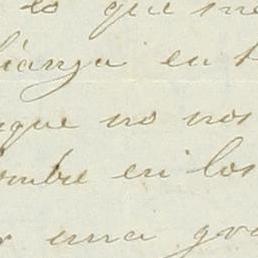 lo que me
ianza en t
que no nos
ombre en los
una gra